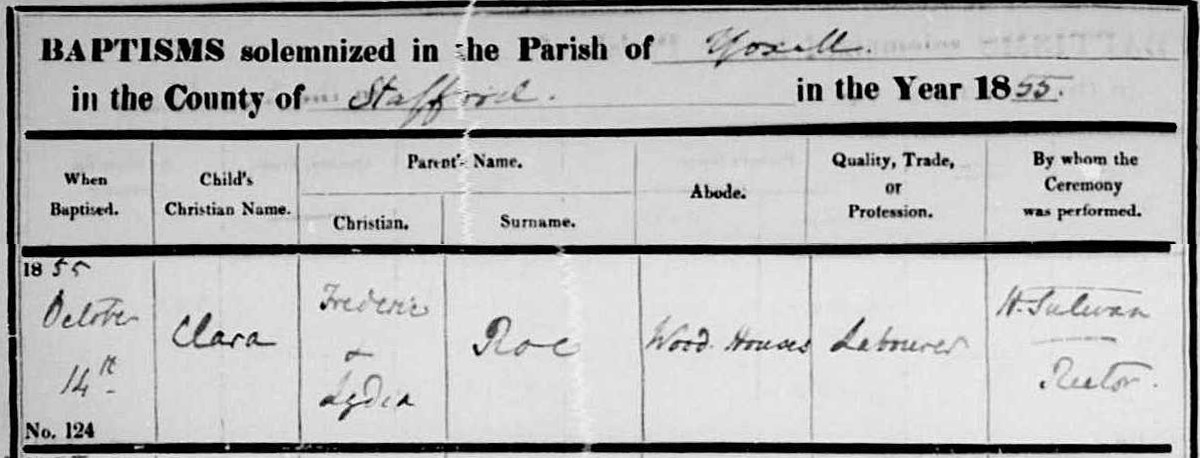 BAPTISMS solemnized in the Parish of Yoxall
in the County of Stafford. in the Year 1855.
When
Baptised.
Child's
Christian Name.
Parent's Name.
Christian.
Surname.
Abode.
Quality, Trade,
or
Profession.
By whom the
Ceremony
was performed.
1855
October
14th
No. 124
Clara
Frederic
&
Lydia
Roe
Wood Houses
Labourer
H. Sulivan
Rector.